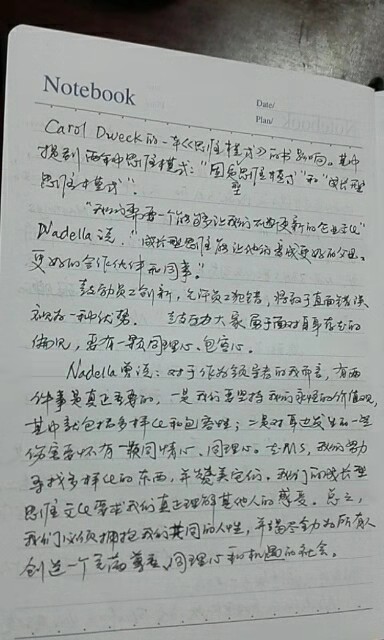 Notebook
Date/
Plan/
Carol Dweck的一本《思维模式》的书影响。其中
提到两种思维模式："固定型思维模式"和"成长型
思维模式"。
"我们需要一个能够让我们不断更新的企业文化"
Nadella说，"成长型思维能让他们养成更好的父母、
更好的合作伙伴和同事。"
鼓励员工创新，允许员工犯错，将敢于直面错误
视为一种优势。鼓励大家勇于面对自身存在的
偏见，要有一颗同理心、包容心。
Nadella曾说：对于作为领导者的我而言，有两
件事是真正重要的，一是我们要坚持我们永恒的价值观，
其中就包括多样化和包容性；二是对耳边发生的一些
伤害要怀有一颗同情心、同理心。在MS，我们努力
寻找多样化的东西，并赞美它们。我们的成长型
思维文化要求我们真正理解其他人的感受。总之，
我们必须拥抱我们共同的人性，并竭尽全力为所有人
创造一个充满尊重、同理心和机遇的社会。